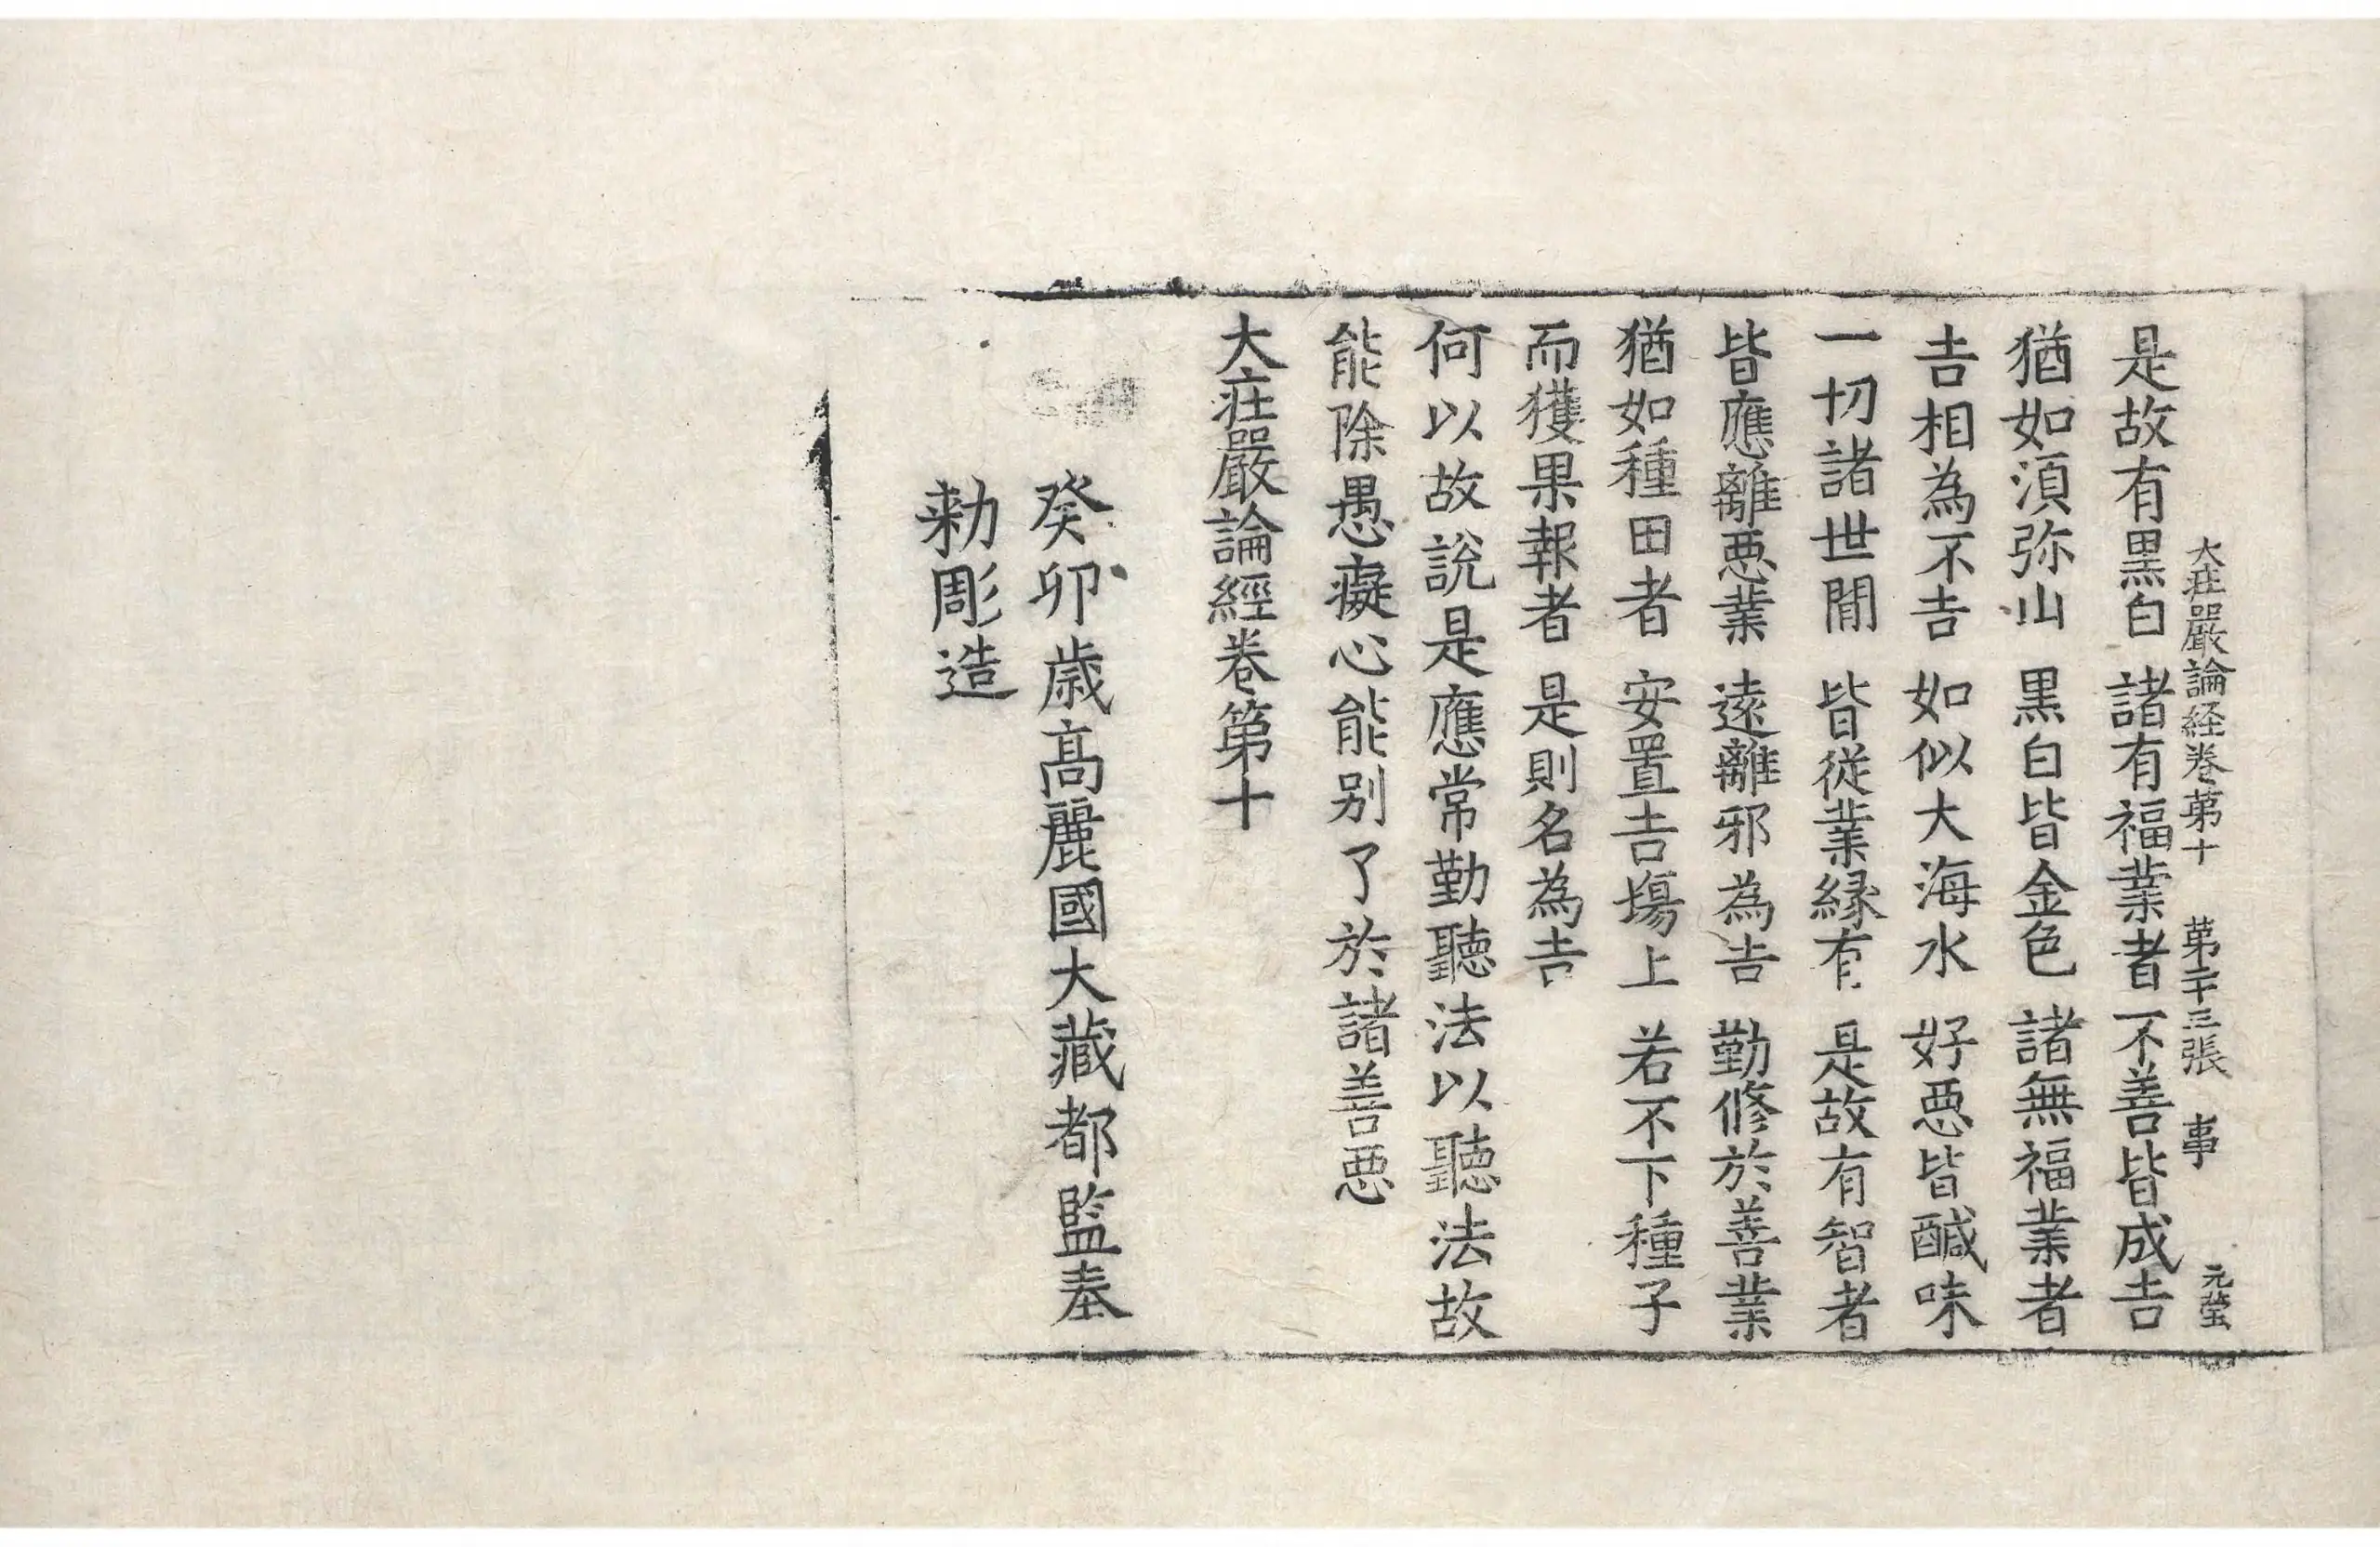 大莊嚴論经卷第十　第二十三張　事　元瑩
是故有黑白　諸有福業者　不善皆成吉
猶如湏弥山　黑白皆金色　諸無福業者
吉相為不吉　如似大海水　好惡皆醎味
一切諸世間　皆從業緣有　是故有智者
皆應離惡業　遠離邪為吉　勤修於善業
猶如種田者　安置吉場上　若不下種子
而獲果報者　是則名為吉
何以故說是應常勤聽法以聽法故
能除愚癡心能別了於諸善惡
大莊嚴論經卷第十
癸卯歳高麗國大藏都監奉
勅彫造